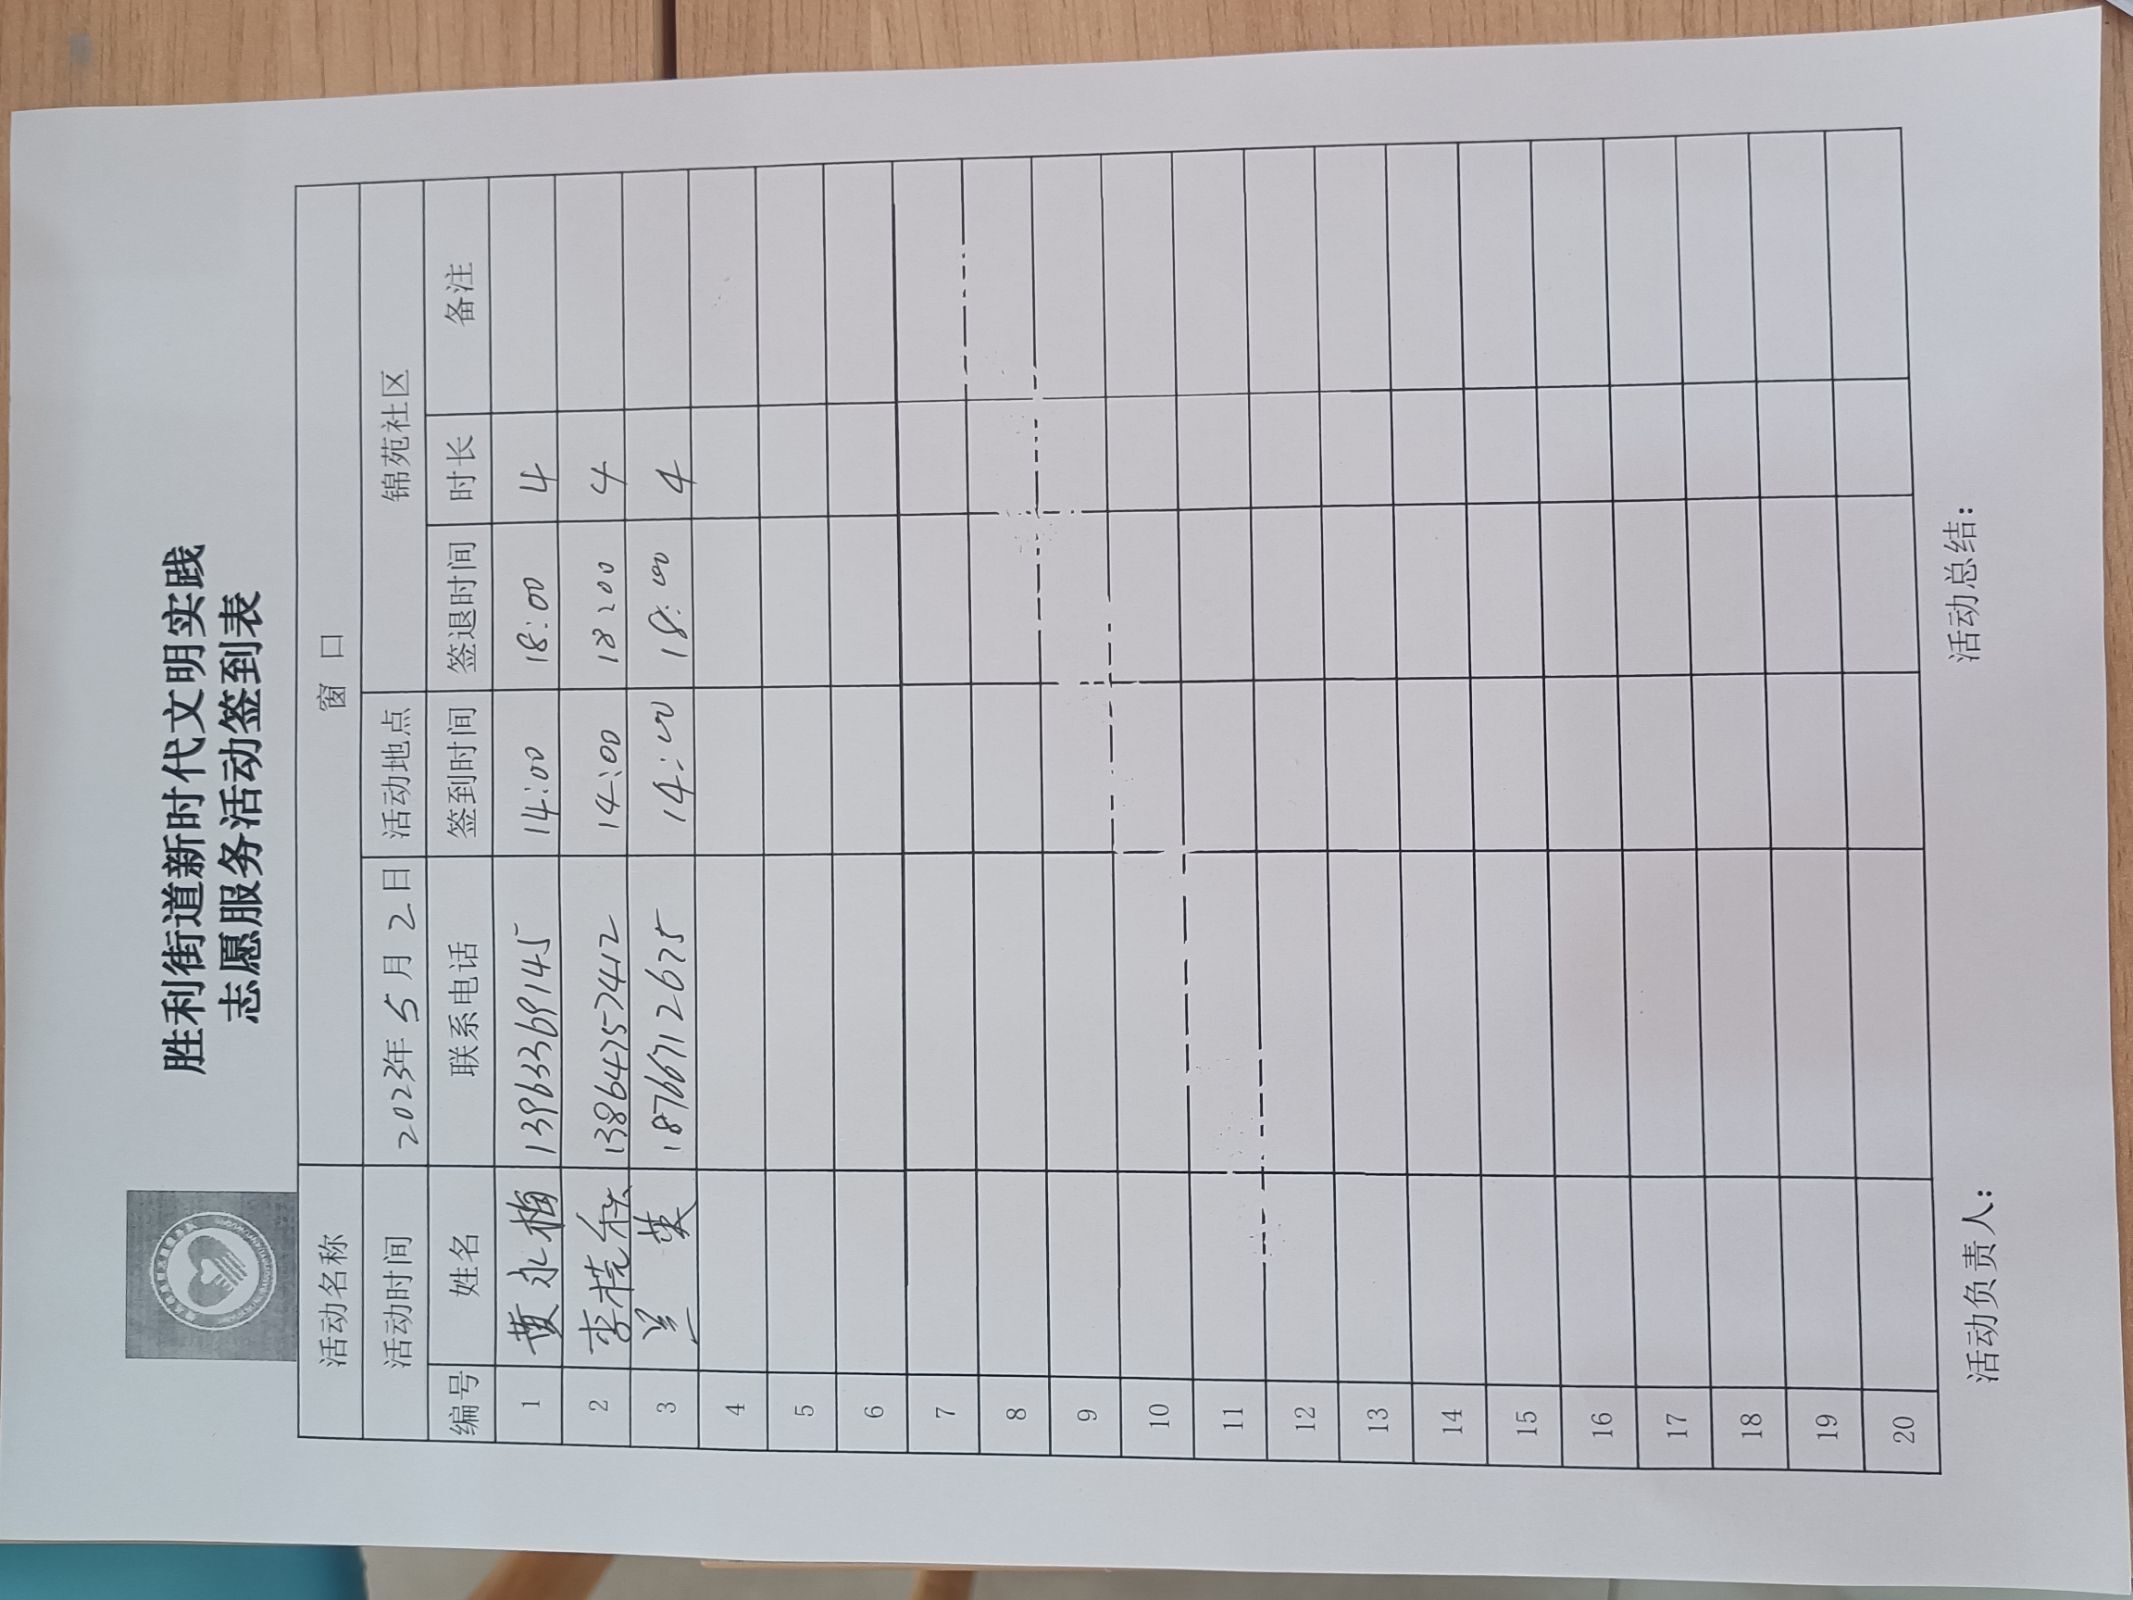 胜利街道新时代文明实践
志愿服务活动签到表
活动名称 窗口
活动时间 2023年5月2日 活动地点 锦苑社区
编号 姓名 联系电话 签到时间 签退时间 时长 备注
1 黄永梅 13963369145 14:00 18:00 4
2 李桂秋 13864757412 14:00 18:00 4
3 兰英 18766712675 14:00 18:00 4
4
5
6
7
8
9
10
11
12
13
14
15
16
17
18
19
20
活动负责人： 活动总结：